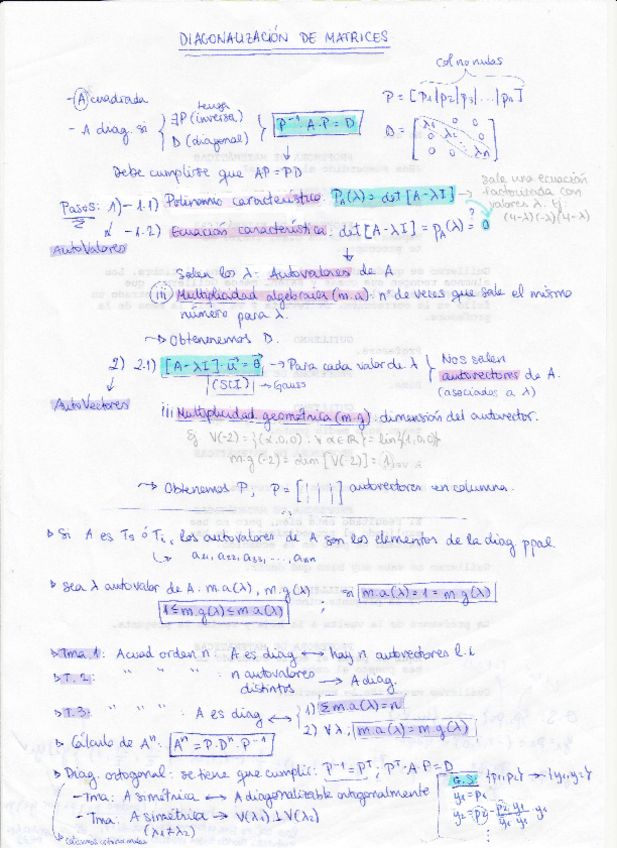 DIAGONALIZACIÓN DE MATRICES
columnas
- A cuadrada
P = [P1|P2|P3|...|Pn]
- A diag. si { ∃P (inversa) D (diagonal) } P⁻¹·A·P = D
tenga
D = [λ1 0 0 / 0 λ2 0 / 0 0 λn]
Debe cumplirse que AP = PD
Sale una ecuación
factorizada con
valores λ. Ej:
(4-λ)(-λ)(4-λ)
Pasos: 1) - 1.1) Polinomio característico: PA(λ) = det [A-λI]
- 1.2) Ecuación característica: det [A-λI] = PA(λ) = 0
?
AutoValores
Salen los λ: Autovalores de A
iii Multiplicidad algebraica (m.a): nº de veces que sale el mismo
número para λ.
→ Obtenemos D.
2) 2.1) [A-λI]·u⃗ = θ⃗ → Para cada valor de λ { Nos salen
autovectores de A.
(asociados a λ)
(SCI) → Gauss
AutoVectores
iii Multiplicidad geométrica (m.g): dimensión del autovector.
Ej V(-2) = {(α,0,0) : ∀ α∈ℝ} = lin{(1,0,0)}
m.g(-2) = dim [V(-2)] = 1
→ Obtenemos P; P = [ | | | ] autovectores en columna.
▷ Si A es Ts ó Ti, los autovalores de A son los elementos de la diag. ppal
↳ a11, a22, a33, ..., ann
▷ sea λ autovalor de A: m.a(λ), m.g(λ)
1 ≤ m.g(λ) ≤ m.a(λ) ; si m.a(λ) = 1 = m.g(λ)
▷ Tma. 1: A cuad orden n: A es diag ↔ hay n autovectores l.i
▷ T. 2: " " " : n autovalores distintos → A diag.
▷ T. 3: " " " : A es diag ↔ { 1) Σ m.a(λ) = n
2) ∀λ; m.a(λ) = m.g(λ)
▷ Cálculo de Aⁿ: Aⁿ = P·Dⁿ·P⁻¹
▷ Diag. ortogonal: se tiene que cumplir: P⁻¹ = Pᵀ; Pᵀ·A·P = D
- Tma: A simétrica ↔ A diagonalizable ortogonalmente
- Tma: A simétrica → V(λ1) ⊥ V(λ2)
(λ1 ≠ λ2)
G.S: {p1,p2} → {y1,y2}
y1 = p1
y2 = p2 - p2·y1 / y1·y1 · y1